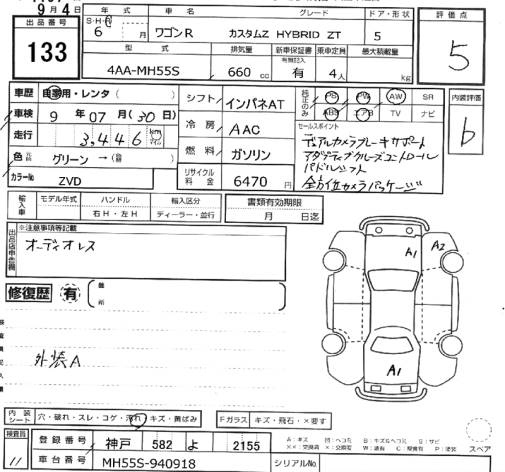 9月4日
出品番号
133
年式 車名 グレード ドア・形状
S・H・R
6 月 ワゴンR カスタムZ HYBRID ZT 5
評価点
5
型式 排気量 新車保証書 乗車定員 最大積載量
有無記入
4AA-MH55S 660 cc 有 4人 kg
車歴 自家用・レンタ (
車検 9年07月(30日)
走行 3,446 km
色 グリーン →(
カラーNo ZVD
シフト インパネAT
冷房 AAC
燃料 ガソリン
リサイクル料金 6470円
純正のみ PS PW AW SR
ABS エアB TV ナビ
セールスポイント
デュアルカメラブレーキサポート
アダプティブクルーズコントロール
パドルシフト
全方位カメラパッケージ
内装評価
b
輸入車 モデル年式 ハンドル 輸入区分
右H・左H ディーラー・並行
書類有効期限
月 日迄
出品店申告欄
※注意事項等記載
オーディオレス
修復歴 有
箇所
外装A
A1
A2
A1
内装シート 穴・破れ・スレ・コゲ・汚れ・キズ・黄ばみ
Fガラス キズ・飛石・×要す
検査員
登録番号 神戸 582 よ 2155
車台番号 MH55S-940918
シリアルNo
スペア